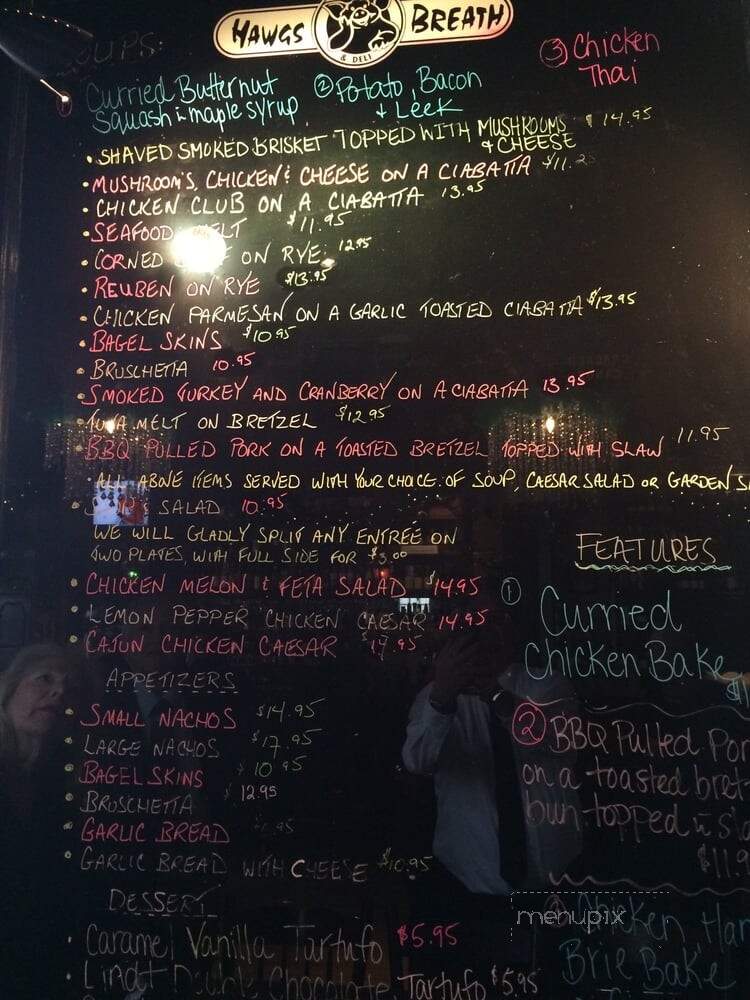 HAWGS BREATH
& DELI
SOUPS:
Curried Butternut
Squash & maple syrup
② Potato, Bacon
+ Leek
③ Chicken
Thai
• SHAVED SMOKED BRISKET TOPPED WITH MUSHROOMS $14.95
& CHEESE
• MUSHROOM'S, CHICKEN & CHEESE ON A CIABATTA
• CHICKEN CLUB ON A CIABATTA 13.95
• SEAFOOD MELT $11.95
• CORNED ON RYE 12.95
• REUBEN ON RYE $13.95
• CHICKEN PARMESAN ON A GARLIC TOASTED CIABATTA $13.95
• BAGEL SKINS $10.95
• BRUSCHETTA 10.95
• SMOKED TURKEY AND CRANBERRY ON A CIABATTA 13.95
• TUNA MELT ON BRETZEL $12.95
• BBQ PULLED PORK ON A TOASTED BRETZEL TOPPED WITH SLAW 11.95
• ALL ABOVE ITEMS SERVED WITH YOUR CHOICE OF SOUP, CAESAR SALAD OR GARDEN
SALAD 10.95
WE WILL GLADLY SPLIT ANY ENTREE ON
TWO PLATES, WITH FULL SIDE FOR $3.00
• CHICKEN MELON & FETA SALAD $14.95
• LEMON PEPPER CHICKEN CAESAR 14.95
• CAJUN CHICKEN CAESAR
APPETIZERS
• SMALL NACHOS $14.95
• LARGE NACHOS $17.95
• BAGEL SKINS $10.95
• BRUSCHETTA $12.95
• GARLIC BREAD
• GARLIC BREAD WITH CHEESE $10.95
DESSERT
• Caramel Vanilla Tartufo $5.95
• Lindt Double Chocolate Tartufo $5.95
FEATURES
① Curried
Chicken Bake
② BBQ Pulled Por
on a toasted bret
bun topped
$11.9
③ Chicken, Ham
Brie Bake
menupix